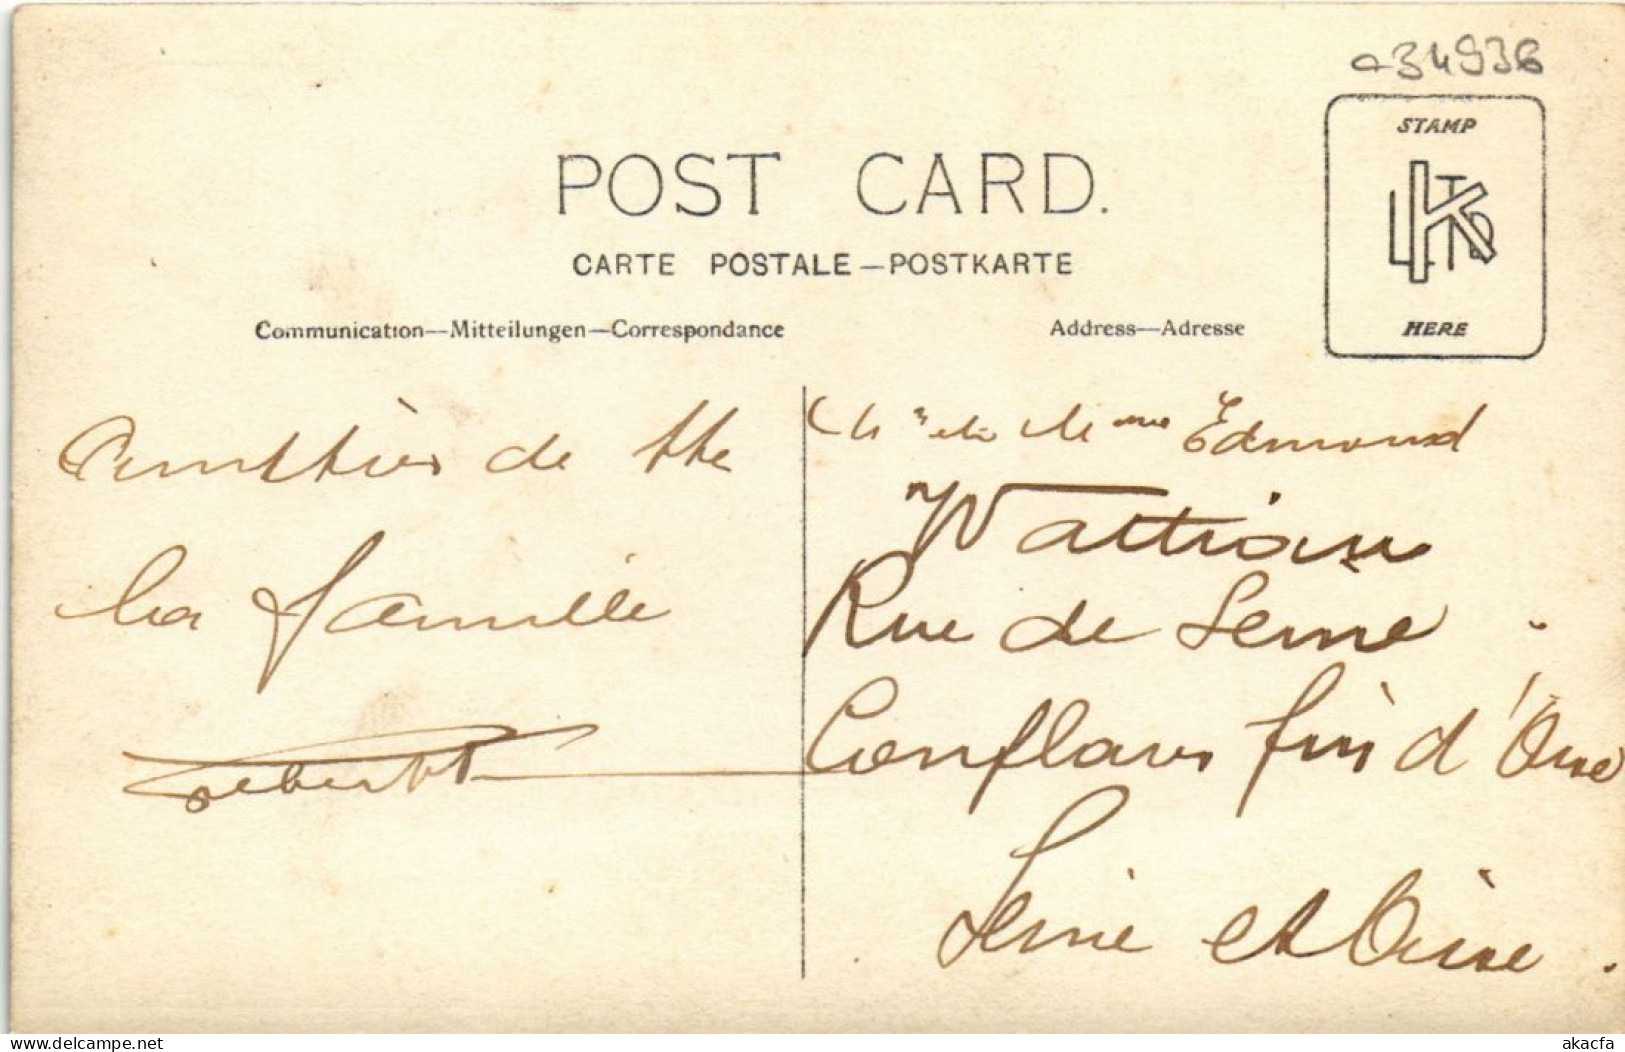 a34936
STAMP
HERE
POST CARD.
CARTE POSTALE—POSTKARTE
Communication—Mitteilungen—Correspondance
Address—Adresse
Amitiés de tte
la famille
Mr et Mme Edmond
Rue de Seine
Conflans fin d'Oise
Seine et Oise.
www.delcampe.net
akacfa